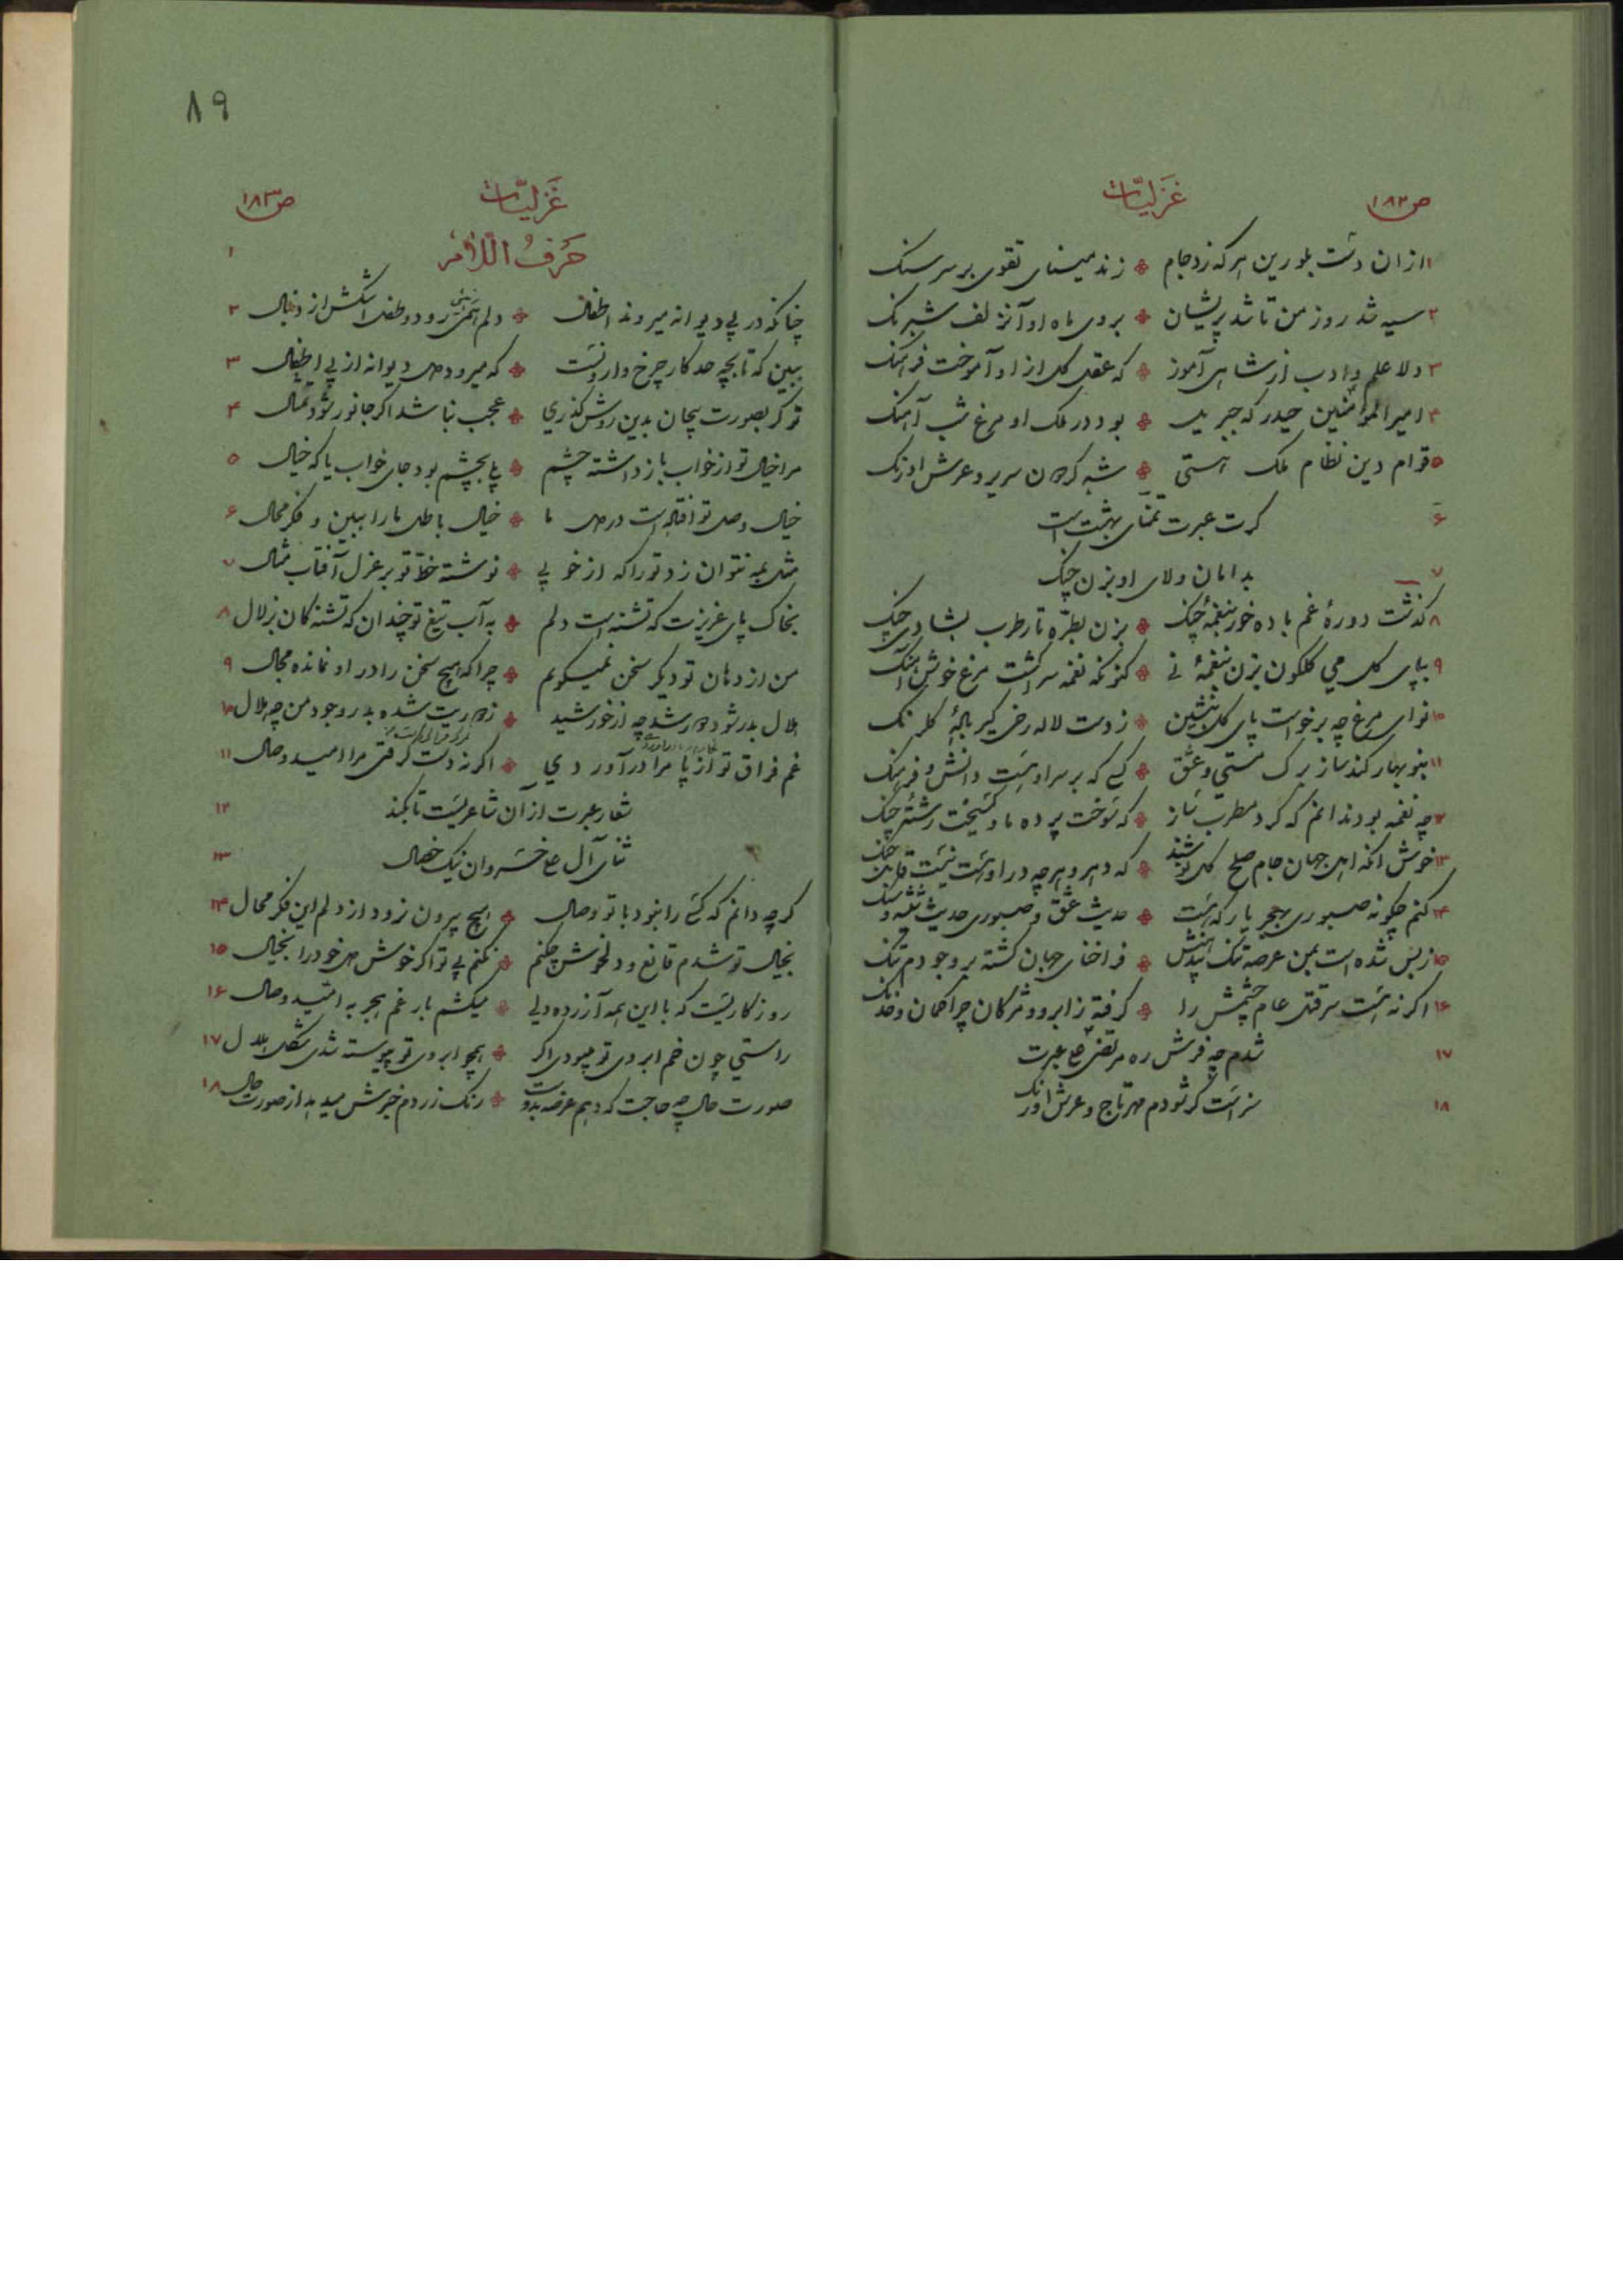 ص ۱۸۲ غزلیات
۱ ازان دست بلورین هرکه زد جام * زند مینای تقوی بر سر سنک
۲ سیه شد روز من تا شد پریشان * بروی ماه او آنزلف شبرنک
۳ دلا علم و ادب از شاهی آموز * که عقل کل ازاو آموخت فرهنک
۴ امیرالمؤمنین حیدر که جبریل * بود در ملک او مرغ شب آهنک
۵ قوام دین نظام ملک هستی * شه کرسی سریر و عرش اورنک
۶ کرت عبرت تمنای بهشت است
۷ بدامان ولای او بزن چنک
۸ کذشت دورهٔ غم باده خور بنغمهٔ چنک * بزن بطرّه تار طرب بشادی چنک
۹ بپای کل می کلکون بزن بنغمهٔ نی * کنونکه نغمه سرا کشت مرغ خوش آهنک
۱۰ نوای مرغ چه برخواست پای کل بنشین * ز دست لاله رخی کیر بادهٔ کلرنک
۱۱ بنوبهار کند ساز برک مستی و عشق * کسی که بر سر او هست دانش و فرهنک
۱۲ چه نغمه بود ندانم که کرد مطرب ساز * که سوخت پرده ما و کسیخت رشته چنک
۱۳ خوش آنکه اهل جهان جام صلح کل نوشند * که دهر و هرچه در او هست نیست قابل جنک
۱۴ کنم چکونه صبوری بهجر یار که هست * حدیث عشق و صبوری حدیث شیشه و سنک
۱۵ زبس شده است بمن عرصه تنک * فراخنای جهان کشته بر وجودم تنک
۱۶ اکر نه هست سر قتل عام چشمش را * کرفته ز ابرو و مژکان چرا کمان و خدنک
۱۷ شدم چه فرش ره مرتضی علی عبرت
۱۸ سزاست کر شودم مهر تاج و عرش اورنک
۸۹
غزلیات ص ۱۸۳
۱ حرف اللام
۲ چنانکه در پی دیوانه میروند اطفال * دلم همی رود و طفل اشکش از دنبال
۳ ببین که تا بچه حد کار چرخ وارونست * که میرود دل دیوانه از پی اطفال
۴ تو کر بصورت بیجان بدین روش کذری * عجب نباشد اکر جانور شود تمثال
۵ مرا خیال تو از خواب باز داشته چشم * بچشم بود جای خواب یا که خیال
۶ خیال وصل تو افتاده است در دل ما * خیال باطل ما را ببین و فکر محال
۷ مثل بمه نتوان زد تو را که از خوبی * نوشته خطّ تو بر عزل آفتاب مثال
۸ بخاک پای عزیزت که تشنه است دلم * به آب تیغ تو چندان که تشنه کان بزلال
۹ من از دهان تو دیکر سخن نمیکویم * چرا که هیچ سخن را در او نمانده مجال
۱۰ هلال بدر شود دور شد چه از خورشید * ز دوریت شده بدر وجود من چه هلال
۱۱ غم فراق تو از پا مرا درآوردی * اکر نه دست کرفتی مرا امید وصال
۱۲ شعار عبرت از آن شاعریست تا بکند
۱۳ ثنای آل علی خسروان نیک خصال
۱۴ کرچه دانم که کسی را نبود با تو وصال * هیچ بیرون نرود از دلم این فکر محال
۱۵ بخیال تو شدم قانع و دلخوش چکنم * نکنم بی تو اکر خوش دل خود را بخیال
۱۶ روزکاریست که با این همه آزرده دلی * میکشم بار غم هجر به امّید وصال
۱۷ راستی چون خم ابروی تو میبودی اکر * همچو ابروی تو پیوسته شدی شکل هلال
۱۸ صورت حال چه حاجت که دهم عرضه بدوست * رنک زردم خبرش میدهد از صورت حال